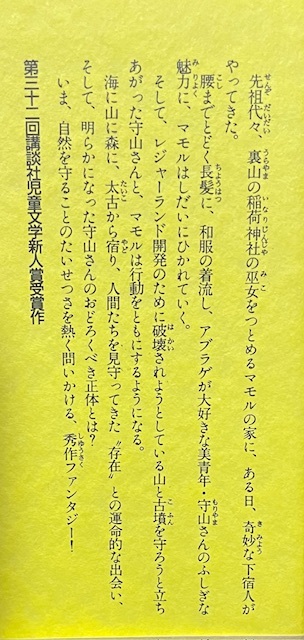 先祖代々、裏山の稲荷神社の巫女をつとめるマモルの家に、ある日、奇妙な下宿人が
やってきた。
腰までとどく長髪に、和服の着流し、アブラゲが大好きな美青年・守山さんのふしぎな
魅力に、マモルはしだいにひかれていく。
そして、レジャーランド開発のために破壊されようとしている山と古墳を守ろうと立ち
あがった守山さんと、マモルは行動をともにするようになる。
海に山に森に、太古から宿り、人間たちを見守ってきた〝存在〟との運命的な出会い、
そして、明らかになった守山さんのおどろくべき正体とは?
いま、自然を守ることのたいせつさを熱く問いかける、秀作ファンタジー!
第三十二回講談社児童文学新人賞受賞作